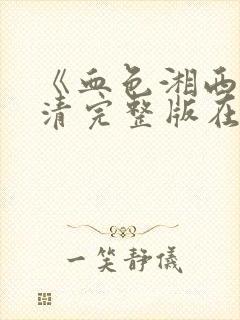 《血色湘西
清完整版在
一笑静儀